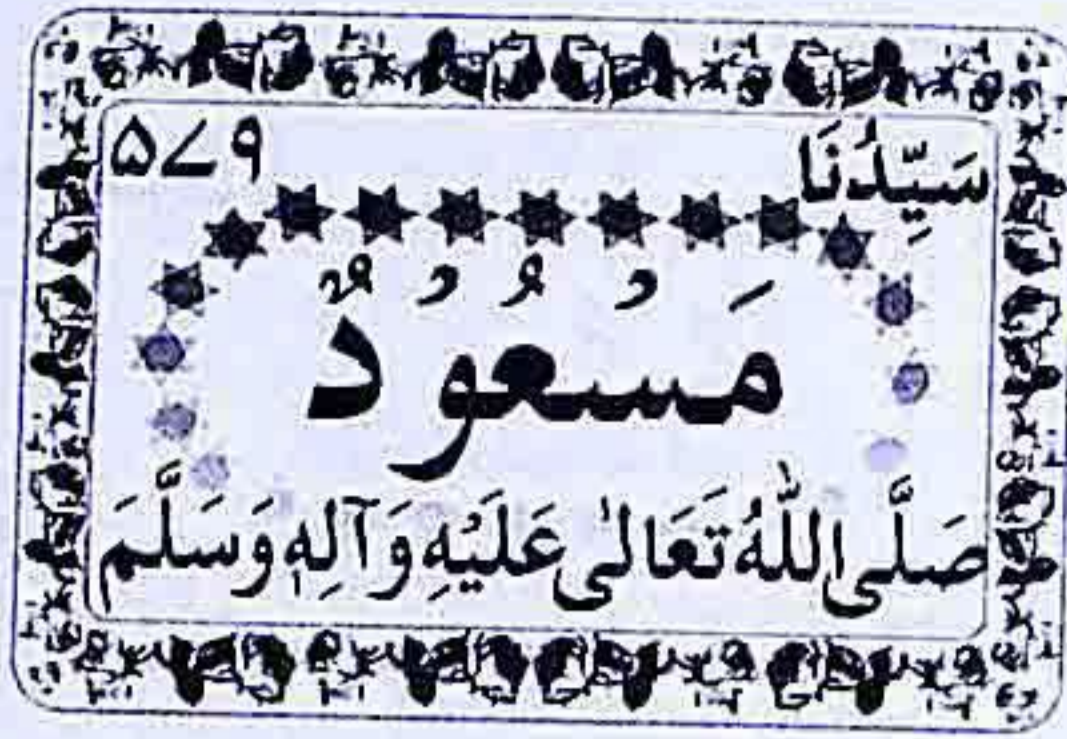 سَيِّدُنَا ۵۷۹
مَسْعُوْدٌ
صَلَّی اللّٰهُ تَعَالٰی عَلَیْهِ وَآلِهٖ وَسَلَّمَ